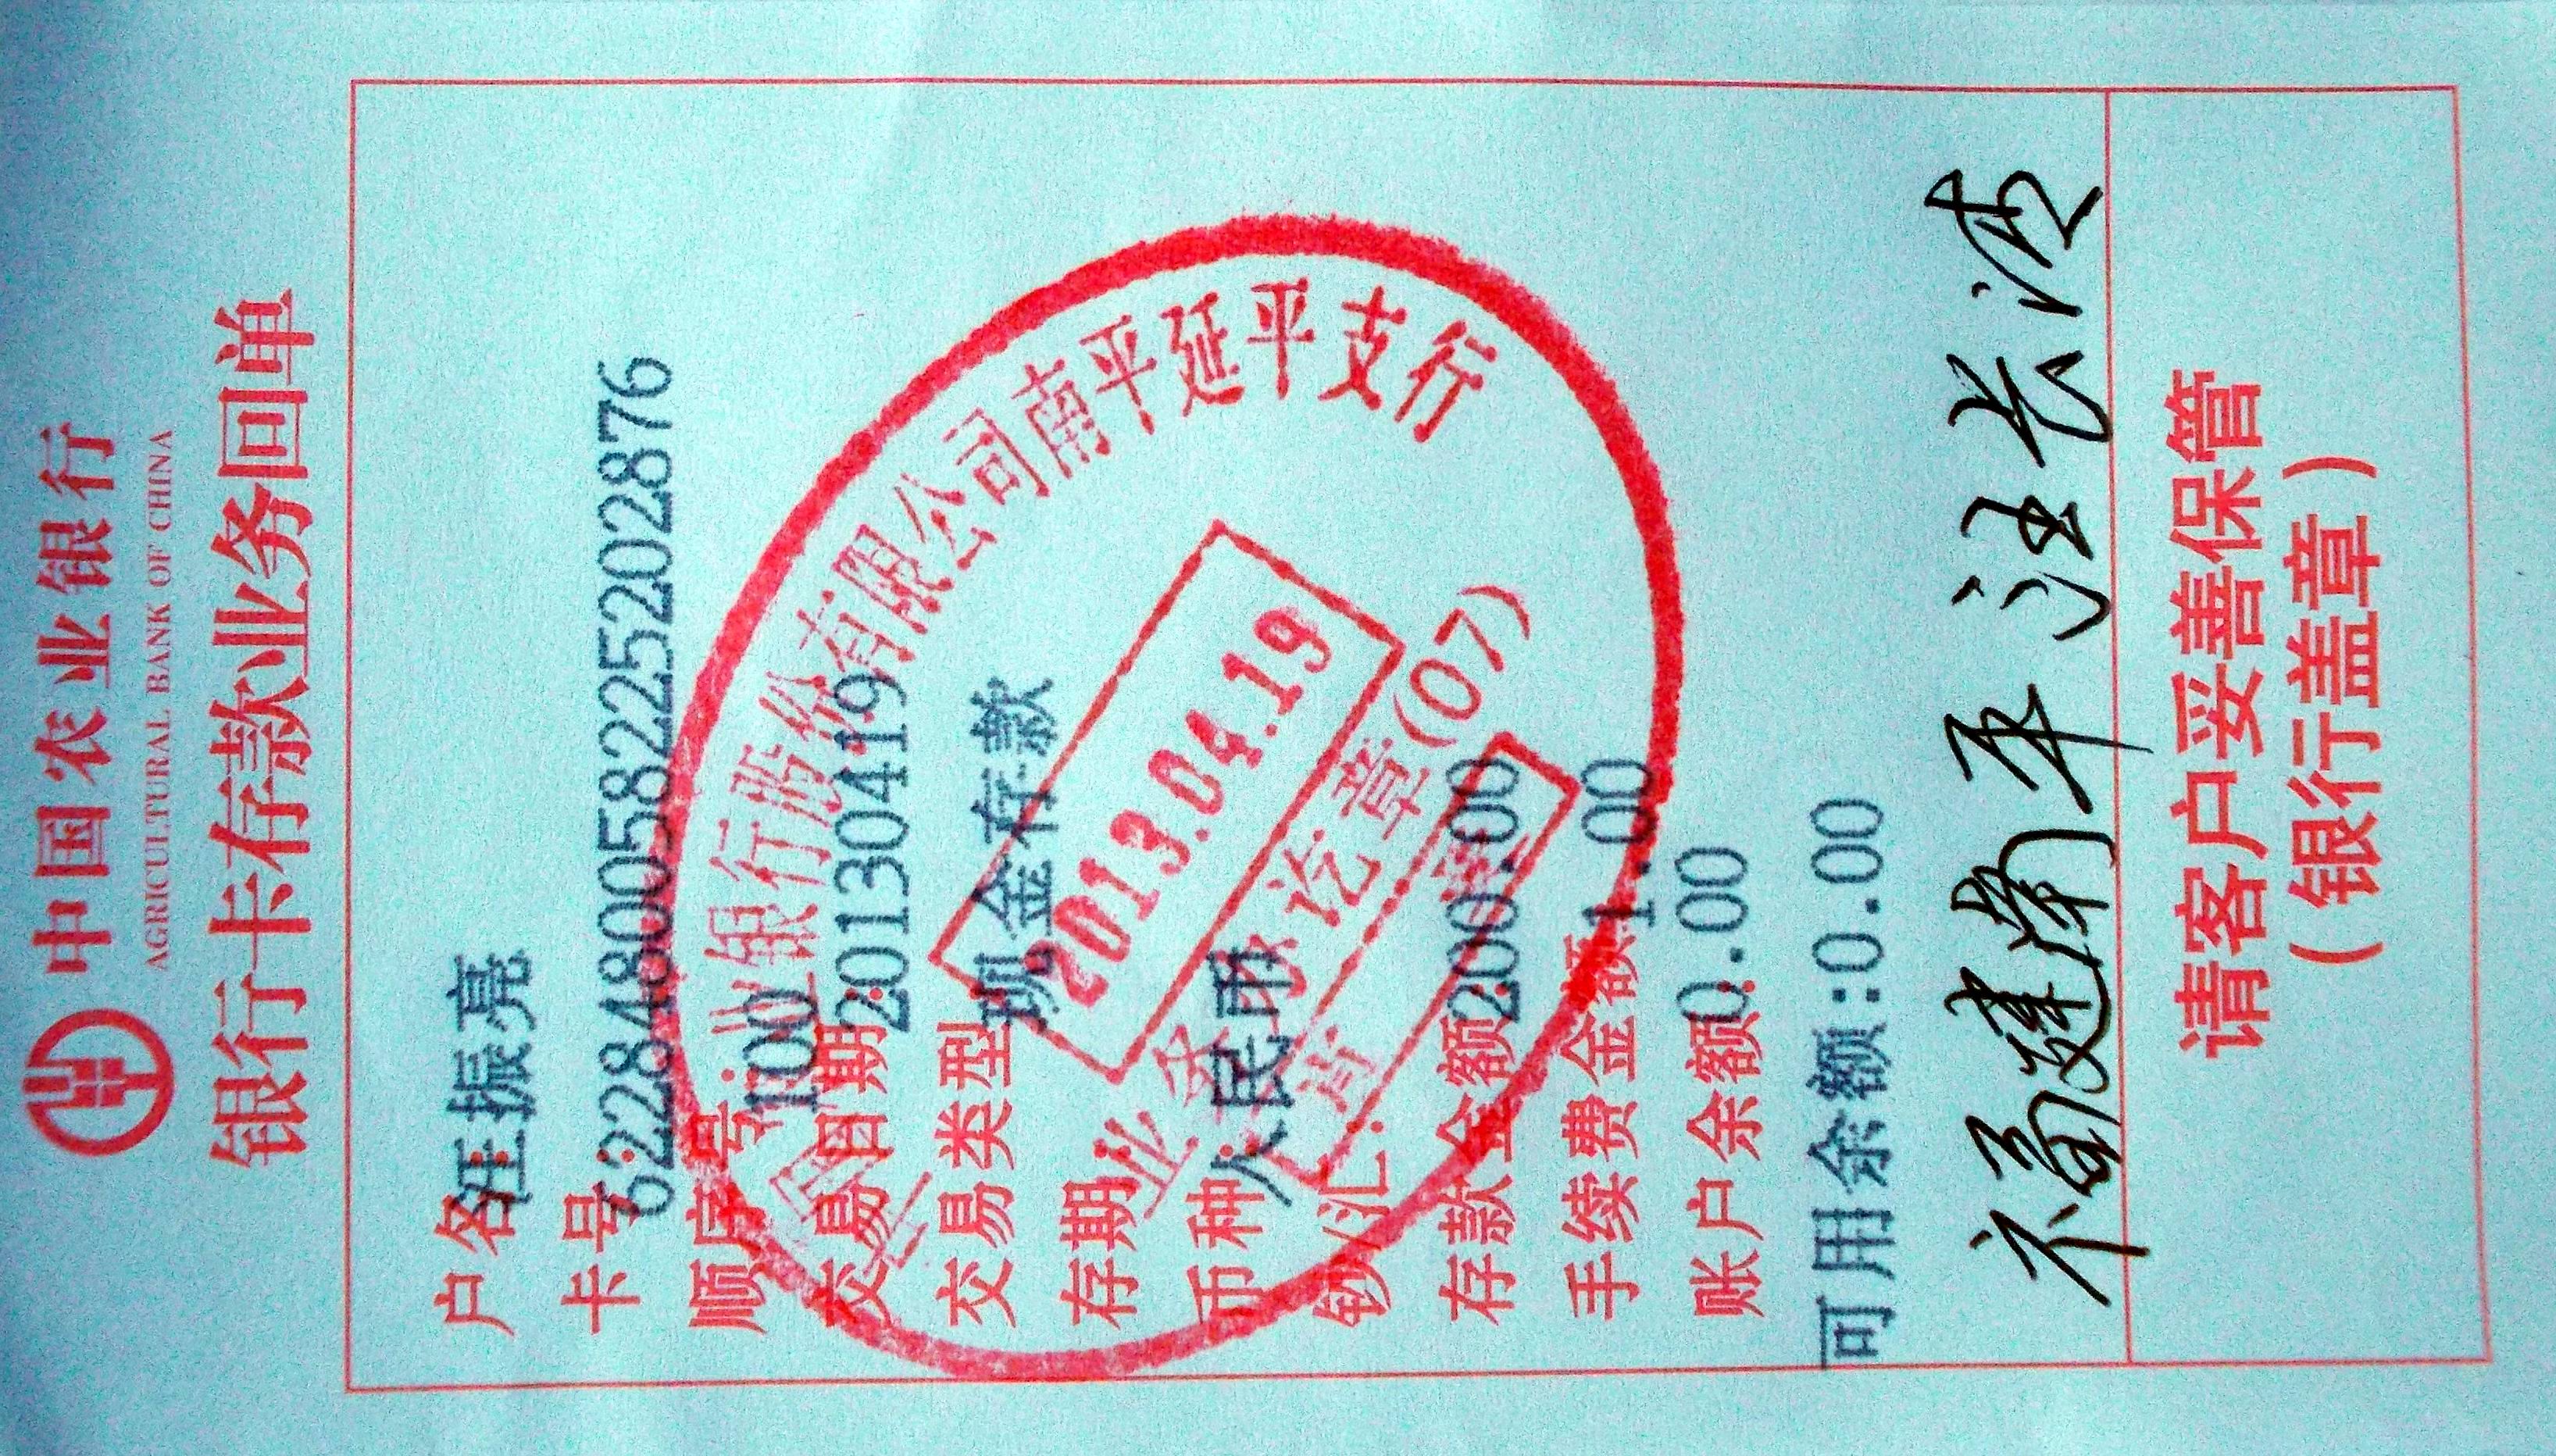 中国农业银行
AGRICULTURAL BANK OF CHINA
银行卡存款业务回单
户名: 汪振亮
卡号: 6228480058225202876
顺序号: 100
交易日期: 20130419
交易类型: 现金存款
存期:
币种: 人民币
钞/汇:
存款金额: 2000.00
手续费金额: 1.00
账户余额: 0.00
可用余额:0.00
业银行股份有限公司南平延平支行
2013.04.19
业务 讫章(07)
福建南平 汪长清
请客户妥善保管
(银行盖章)